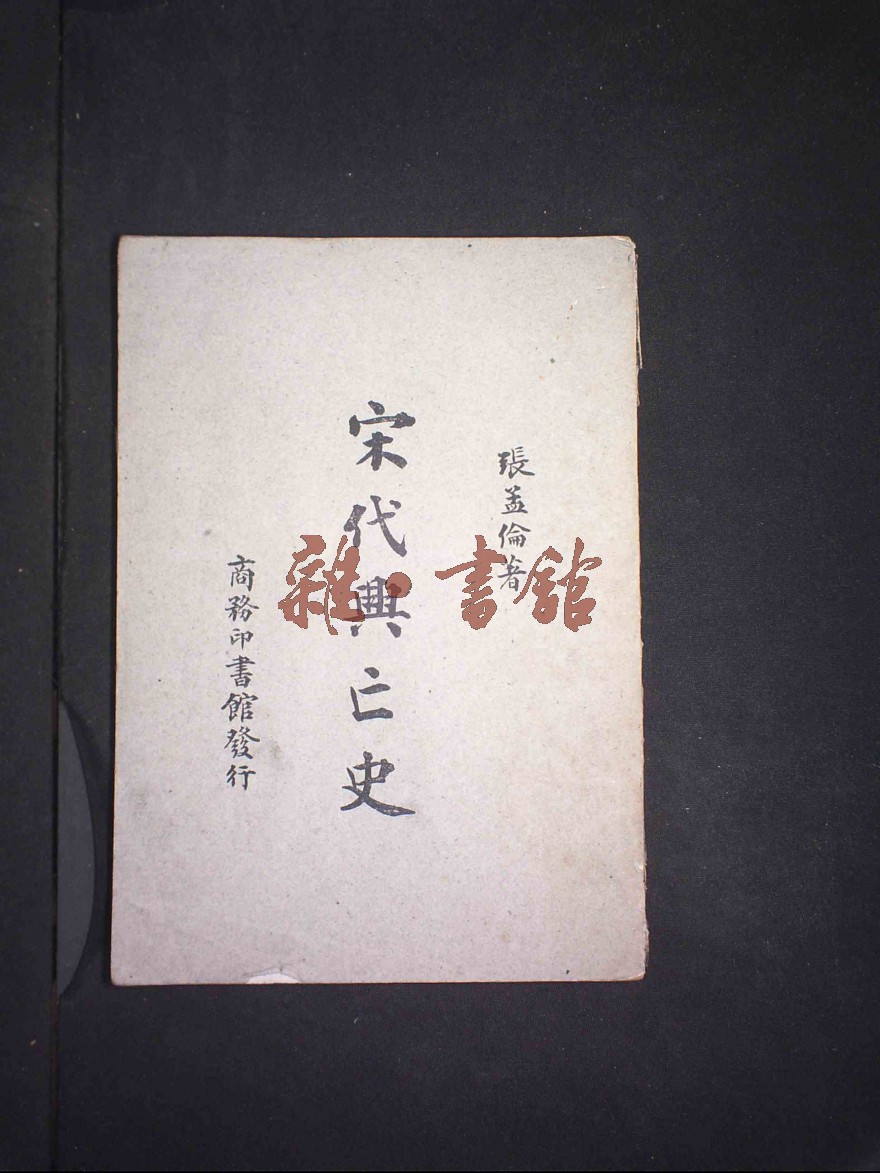 張孟倫著
宋代興亡史
商務印書館發行
雜·書館